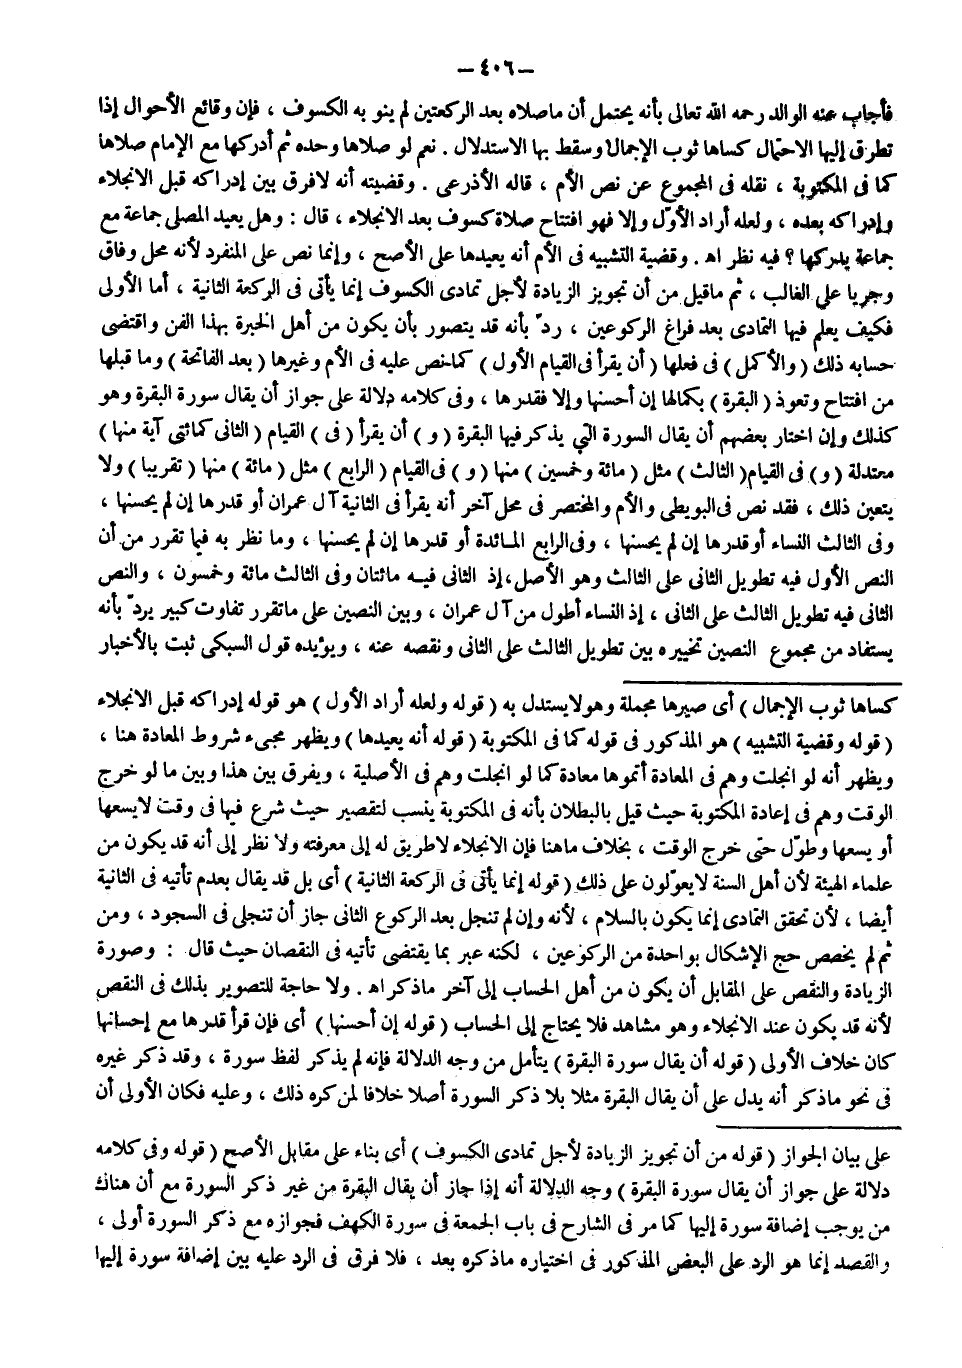 — ٤٠٦ —
فأجاب عنه الوالد رحمه الله تعالى بأنه يحتمل أن ماصلاه بعد الركعتين لم ينو به الكسوف ، فإن وقائع الأحوال إذا
تطرق إليها الاحتمال كساها ثوب الإجمال وسقط بها الاستدلال . نعم لو صلاها وحده ثم أدركها مع الإمام صلاها
كما فى المكتوبة ، نقله فى المجموع عن نص الأم ، قاله الأذرعى . وقضيته أنه لافرق بين إدراكه قبل الانجلاء
وإدراكه بعده ، ولعله أراد الأوّل وإلا فهو افتتاح صلاة كسوف بعد الانجلاء ، قال : وهل يعيد المصلى جماعة مع
جماعة يدركها ؟ فيه نظر اه . وقضية التشبيه فى الأم أنه يعيدها على الأصح ، وإنما نص على المنفرد لأنه محل وفاق
وجريا على الغالب ، ثم ماقيل من أن تجويز الزيادة لأجل تمادى الكسوف إنما يأتى فى الركعة الثانية ، أما الأولى
فكيف يعلم فيها التمادى بعد فراغ الركوعين ، ردّ بأنه قد يتصور بأن يكون من أهل الخبرة بهذا الفن واقتضى
حسابه ذلك ( والأكمل ) فى فعلها ( أن يقرأ فى القيام الأول ) كما نص عليه فى الأم وغيرها ( بعد الفاتحة ) وما قبلها
من افتتاح وتعوذ ( البقرة ) بكمالها إن أحسنها وإلا فقدرها ، وفى كلامه دلالة على جواز أن يقال سورة البقرة وهو
كذلك وإن اختار بعضهم أن يقال السورة التي يذكر فيها البقرة ( و ) أن يقرأ ( فى ) القيام ( الثانى كمائتى آية منها )
معتدلة ( و ) فى القيام ( الثالث ) مثل ( مائة وخمسين ) منها ( و ) فى القيام ( الرابع ) مثل ( مائة ) منها ( تقريبا ) ولا
يتعين ذلك ، فقد نص فى البويطى والأم والمختصر فى محل آخر أنه يقرأ فى الثانية آل عمران أو قدرها إن لم يحسنها ،
وفى الثالث النساء أوقدرها إن لم يحسنها ، وفى الرابع المائدة أو قدرها إن لم يحسنها ، وما نظر به فيما تقرر من أن
النص الأول فيه تطويل الثانى على الثالث وهو الأصل ، إذ الثانى فيه مائتان وفى الثالث مائة وخمسون ، والنص
الثانى فيه تطويل الثالث على الثانى ، إذ النساء أطول من آل عمران ، وبين النصين على ماتقرر تفاوت كبير يردّ بأنه
يستفاد من مجموع النصين تخييره بين تطويل الثالث على الثانى ونقصه عنه ، ويؤيده قول السبكى ثبت بالأخبار
كساها ثوب الإجمال ) أى صيرها مجملة وهو لايستدل به ( قوله ولعله أراد الأول ) هو قوله إدراكه قبل الانجلاء
( قوله وقضية التشبيه ) هو المذكور فى قوله كما فى المكتوبة ( قوله أنه يعيدها ) ويظهر مجىء شروط المعادة هنا ،
ويظهر أنه لو انجلت وهم فى المعادة أتموها معادة كما لو انجلت وهم فى الأصلية ، ويفرق بين هذا وبين ما لو خرج
الوقت وهم فى إعادة المكتوبة حيث قيل بالبطلان بأنه فى المكتوبة ينسب لتقصير حيث شرع فيها فى وقت لايسعها
أو يسعها وطوّل حتى خرج الوقت ، بخلاف ماهنا فإن الانجلاء لاطريق له إلى معرفته ولا نظر إلى أنه قد يكون من
علماء الهيئة لأن أهل السنة لايعوّلون على ذلك ( قوله إنما يأتى فى الركعة الثانية ) أى بل قد يقال بعدم تأتيه فى الثانية
أيضا ، لأن تحقق التمادى إنما يكون بالسلام ، لأنه وإن لم تنجل بعد الركوع الثانى جاز أن تنجلى فى السجود ، ومن
ثم لم يخصص حج الإشكال بواحدة من الركوعين ، لكنه عبر بما يقتضى تأتيه فى النقصان حيث قال : وصورة
الزيادة والنقص على المقابل أن يكون من أهل الحساب إلى آخر ماذكر اه . ولا حاجة للتصوير بذلك فى النقص
لأنه قد يكون عند الانجلاء وهو مشاهد فلا يحتاج إلى الحساب ( قوله إن أحسنها ) أى فإن قرأ قدرها مع إحسانها
كان خلاف الأولى ( قوله أن يقال سورة البقرة ) يتأمل من وجه الدلالة فإنه لم يذكر لفظ سورة ، وقد ذكر غيره
فى نحو ماذكر أنه يدل على أن يقال البقرة مثلا بلا ذكر السورة أصلا خلافا لمن كره ذلك ، وعليه فكان الأولى أن
على بيان الجواز ( قوله من أن تجويز الزيادة لأجل تمادى الكسوف ) أى بناء على مقابل الأصح ( قوله وفى كلامه
دلالة على جواز أن يقال سورة البقرة ) وجه الدلالة أنه إذا جاز أن يقال البقرة من غير ذكر السورة مع أن هناك
من يوجب إضافة سورة إليها كما مر فى الشارح فى باب الجمعة فى سورة الكهف فجوازه مع ذكر السورة أولى ،
والقصد إنما هو الرد على البعض المذكور فى اختياره ماذكره بعد ، فلا فرق فى الرد عليه بين إضافة سورة إليها